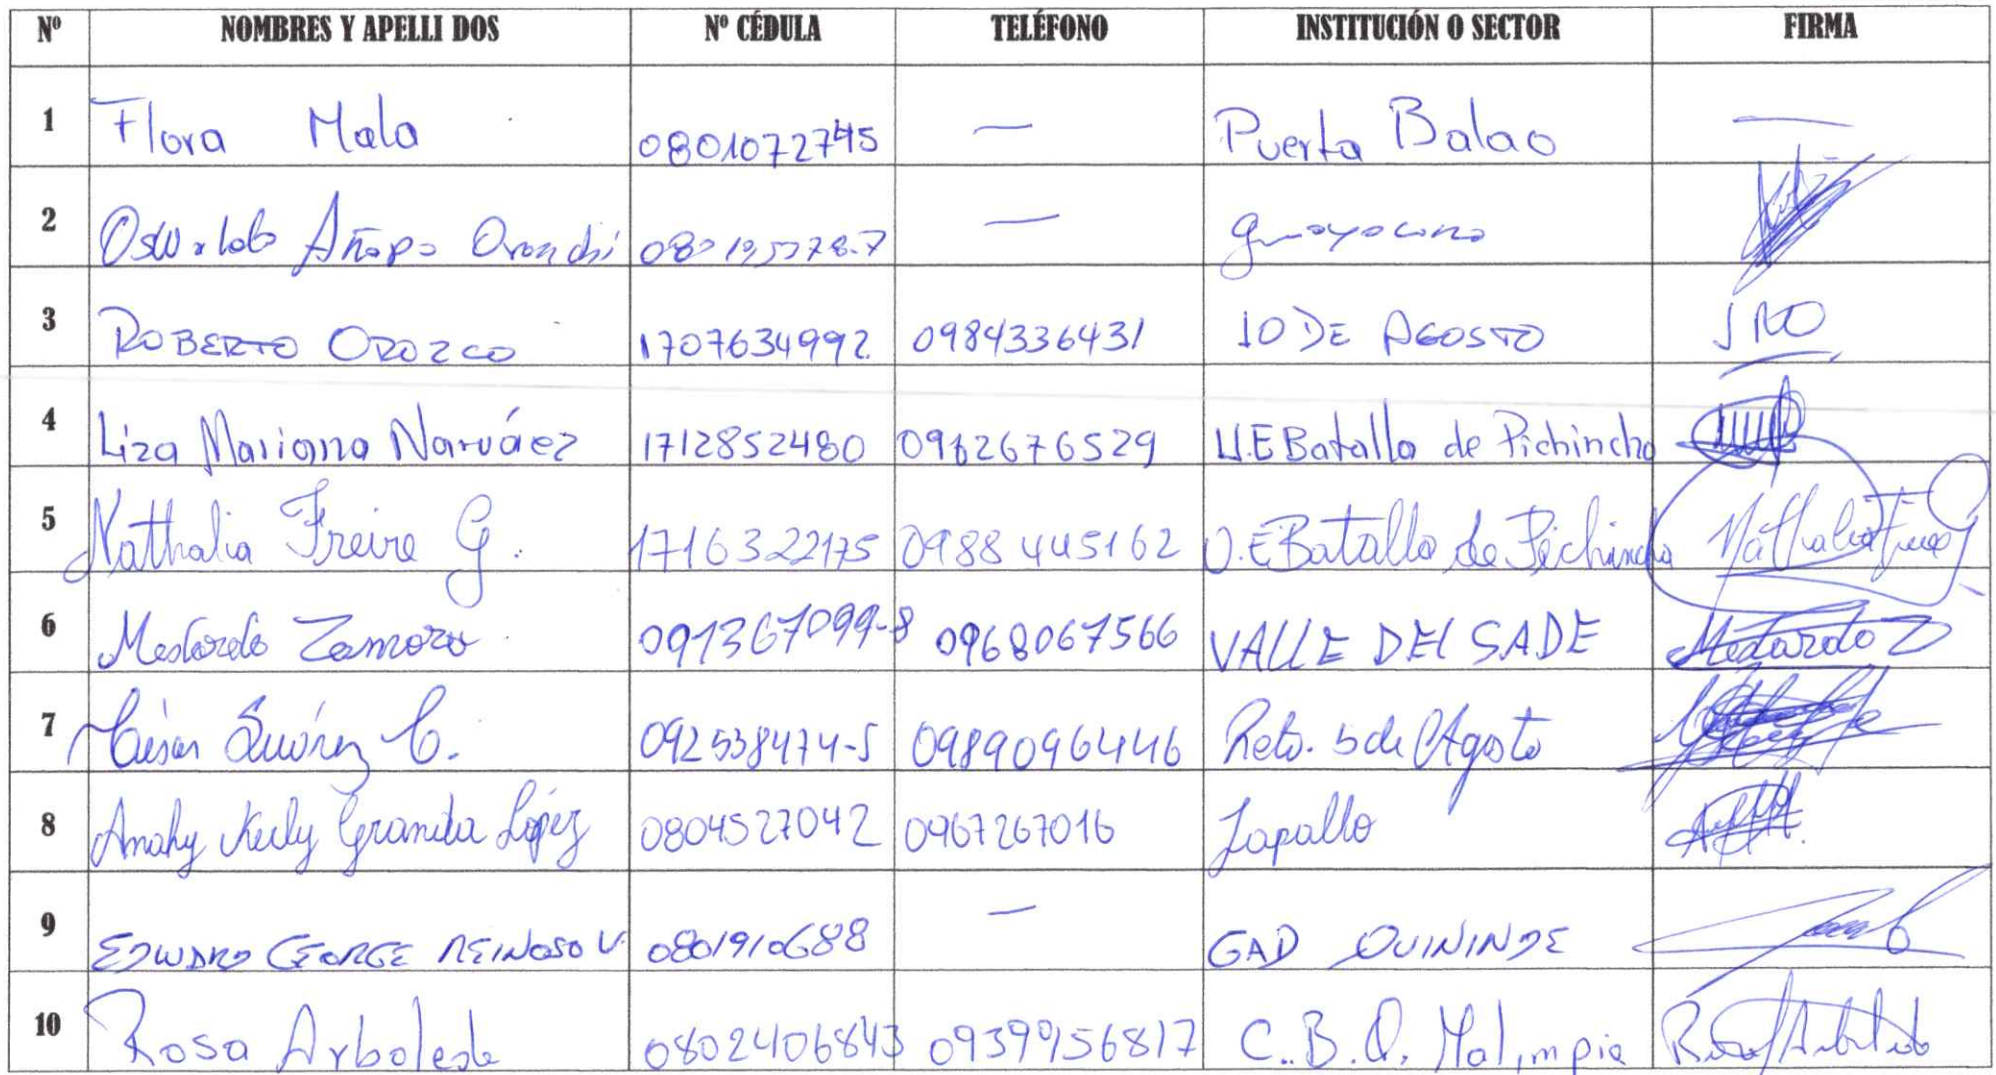 Nº NOMBRES Y APELLI DOS Nº CÉDULA TELÉFONO INSTITUCIÓN O SECTOR FIRMA
1 Flora Mala 0801072745 — Puerta Balao —
2 Oswaldo Añapa — guayacana
3 ROBERTO OROZCO 1707634992 0984336431 10 DE AGOSTO JRO
4 Liza Mariana Narváez 1712852480 0962676529 U.E Batalla de Pichincha
5 Nathalia Freire G. 1716322175 0988445162 U.E Batalla de Pichincha Nathalia Freire G
6 Medardo Zamora 091367099-8 0968067566 VALLE DEL SADE Medardo Z
7 César Suárez C. 092538474-5 0989096446 Rcto. 5 de Agosto
8 Anahy Kerly Granda López 0804527042 0967267016 Zapallo
9 EDWARD GEORGE REINOSO V. 0801910688 — GAD QUININDE
10 Rosa Arboleda 0802406843 0939956817 C.B.Q. Malimpia Rosa Arboleda